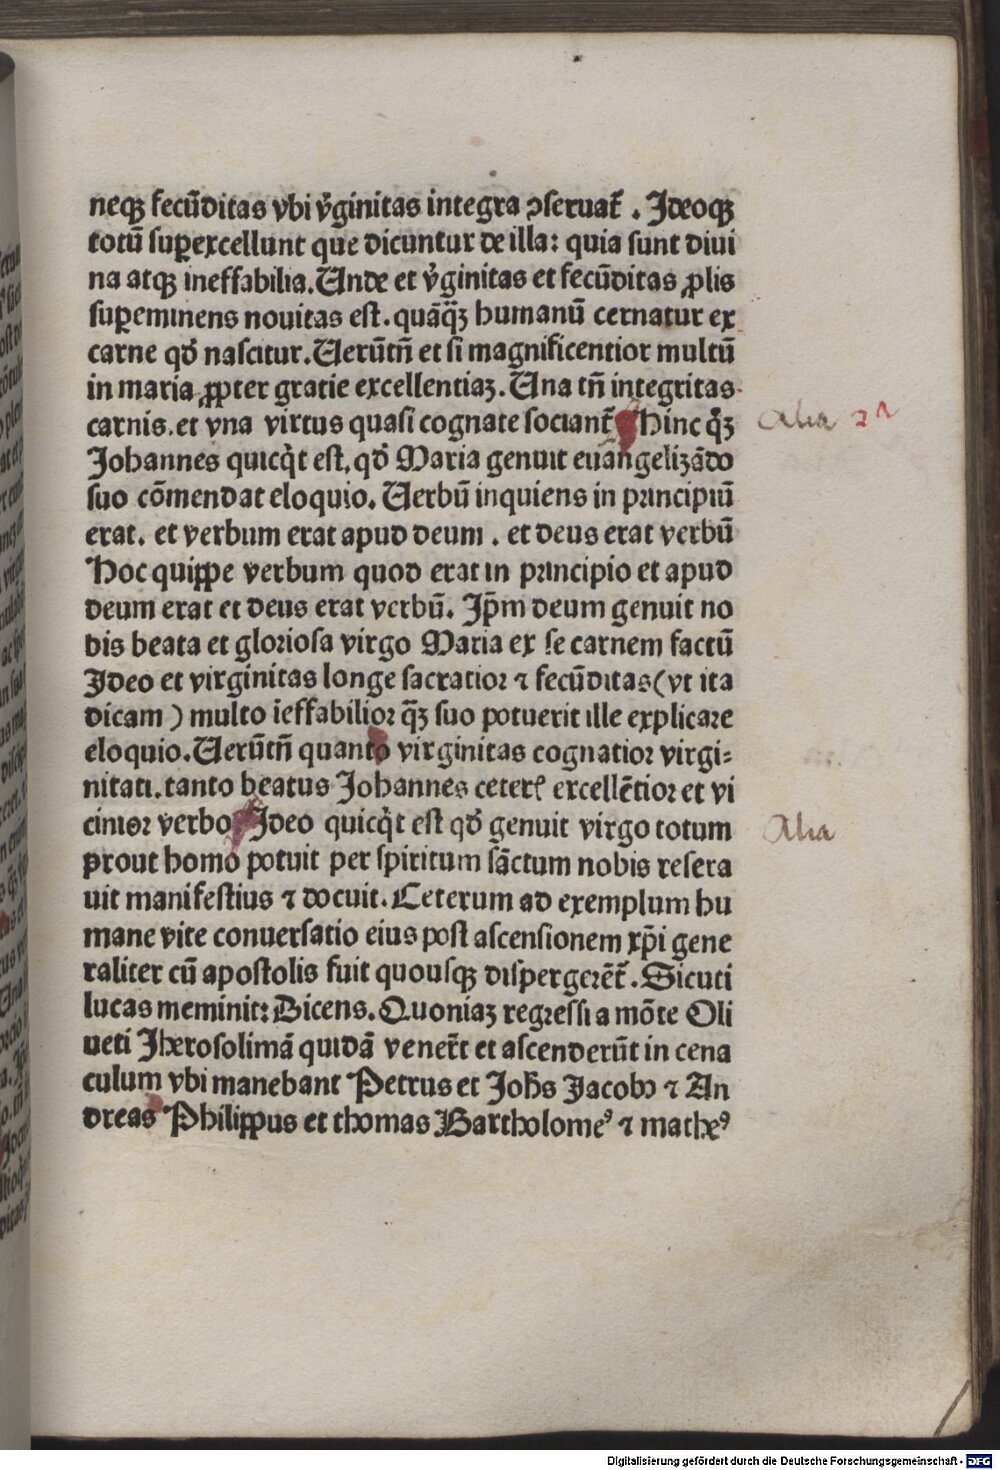 neqꝫ fecūditas vbi v̓ginitas integra ꝯseruat᷑ . Jdeoqꝫ
totū suꝑexcellunt que dicuntur de illa: quia sunt diui
na atqꝫ ineffabilia. Unde et v̓ginitas et fecūditas ꝓlis
suꝑeminens nouitas est. quāq̄ꝫ humanū cernatur ex
carne qd̓ nascitur. Uerūtn̄ et si magnificentior multū
in maria ꝓpter gratie excellentiaꝫ. Una tn̄ integritas
carnis. et vna virtus quasi cognate sociant᷑ Hinc q̄ꝫ
Johannes quicq̇t est, qd̓ Maria genuit euāngelizādo
suo cōmendat eloquio. Uerbū inquiens in principiū
erat. et verbum erat apud deum . et deus erat verbū
Hoc quippe verbum quod erat in principio et apud
deum erat et deus erat verbū. Jpm̄ deum genuit no
bis beata et gloriosa virgo Maria ex se carnem factū
Jdeo et virginitas longe sacratior ⁊ fecūditas (vt ita
dicam) multo īeffabilior q̄ꝫ suo potuerit ille explicare
eloquio. Uerūtn̄ quanto virginitas cognatior virgi⸗
nitati. tanto beatus Johannes ceterꝭ excellētior et vi
cinior verbo Jdeo quicq̇t est qd̓ genuit virgo totum
prout homo potuit per spiritum sāctum nobis resera
uit manifestius ⁊ docuit. Ceterum ad exemplum hu
mane vite conuersatio eius post ascensionem xp̄i gene
raliter cū apostolis fuit quousqꝫ dispergerēt᷑. Sicuti
lucas meminit: Dicens. Quoniaꝫ regressi a mōte Oli
ueti Jherosolimā quidā vener̄t et ascenderūt in cena
culum vbi manebant Petrus et Joh̄s Jacob ⁊ An
dreas Philippus et thomas Bartholomeꝰ ⁊ matheꝰ
Alia
Alia
Digitalisierung gefördert durch die Deutsche Forschungsgemeinschaft - DFG